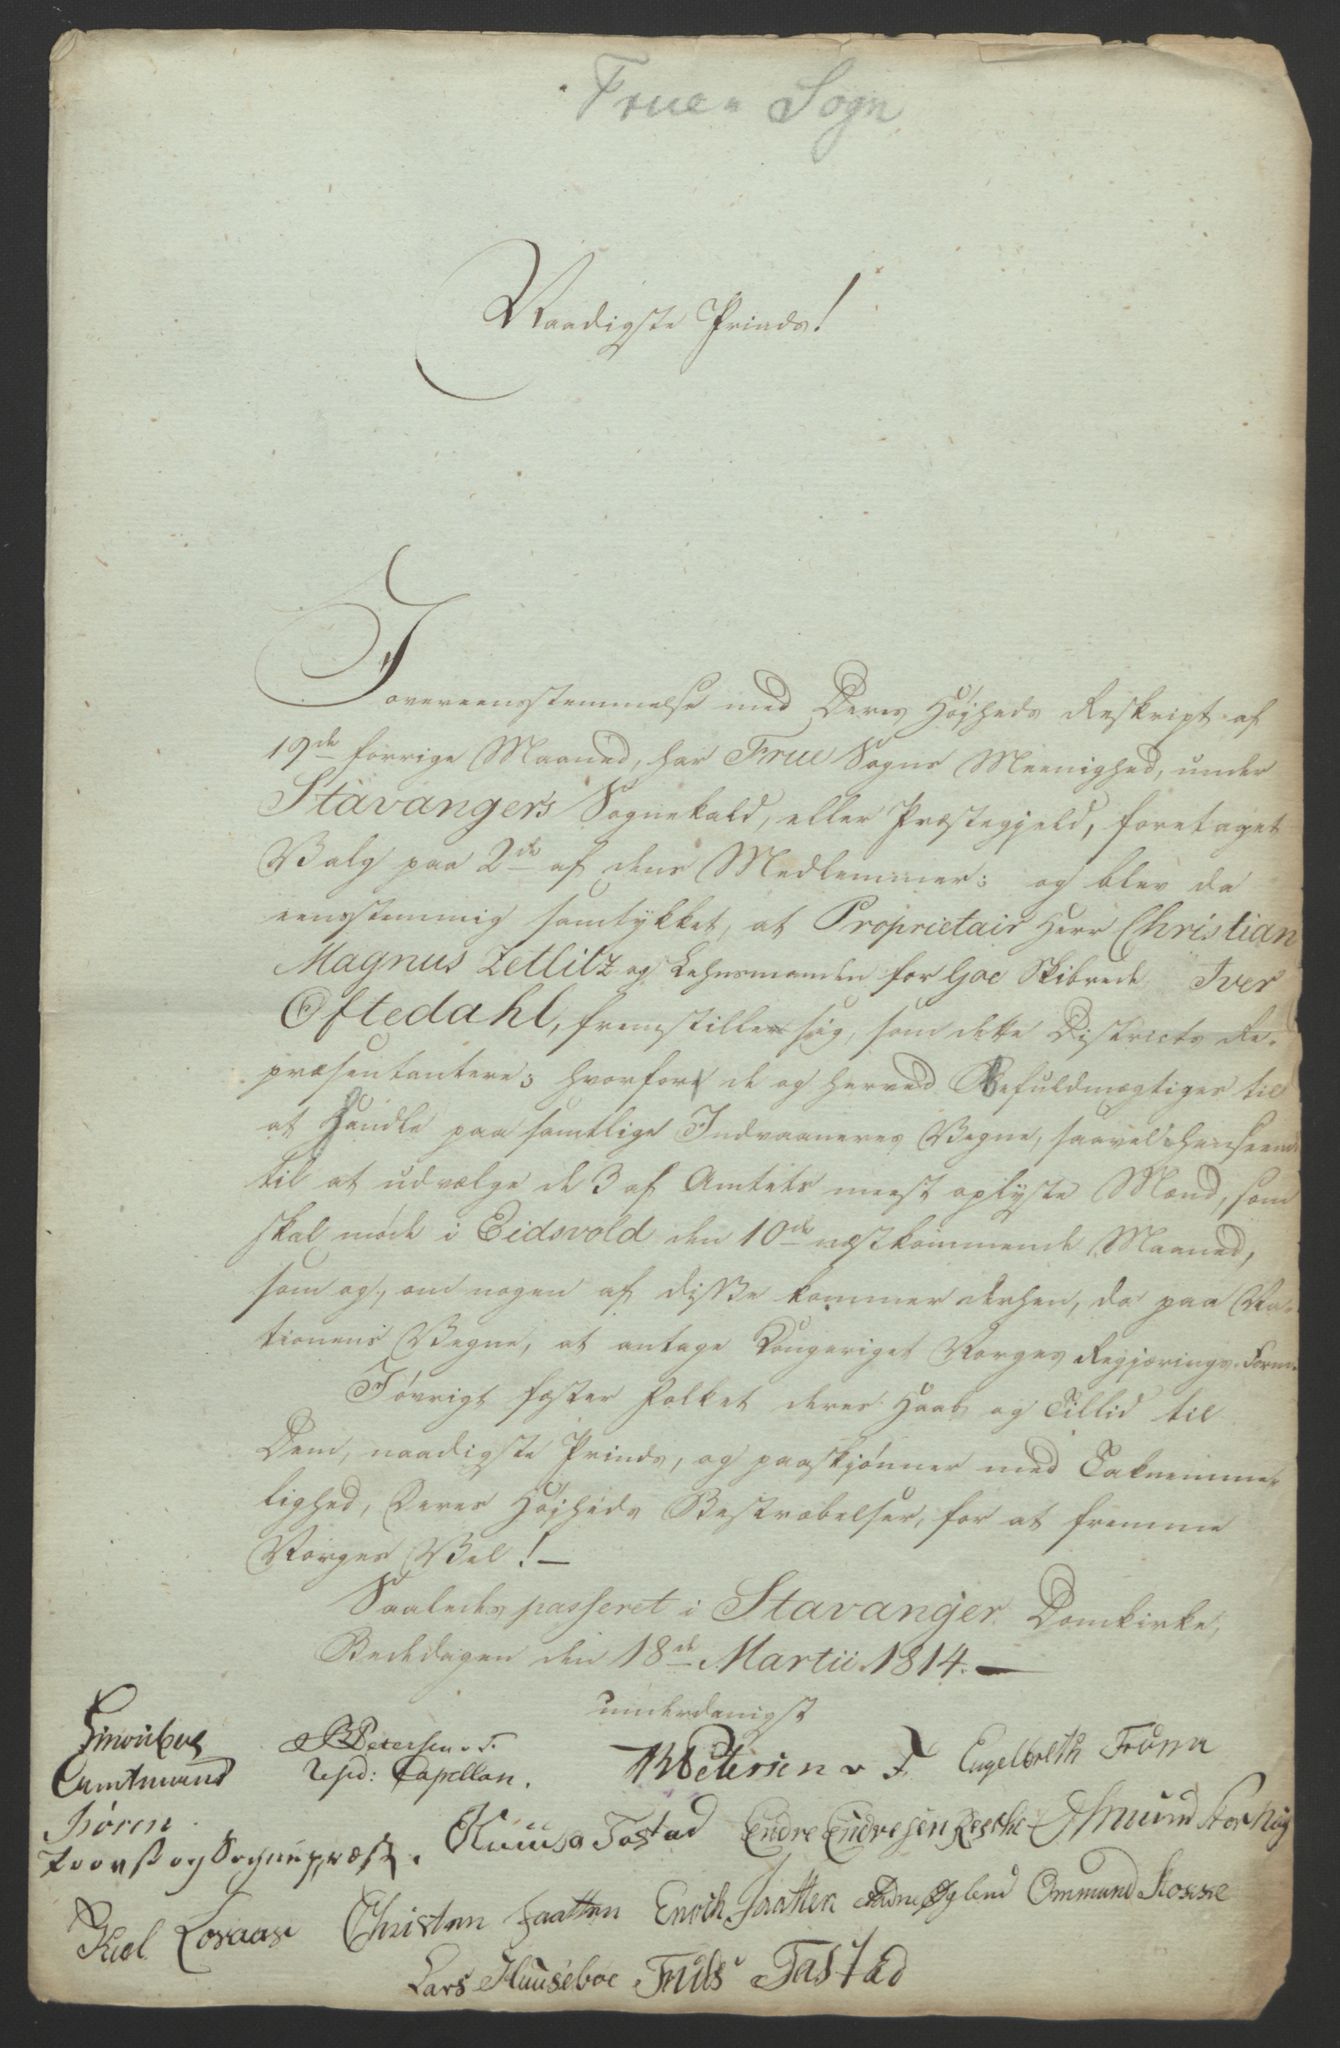 Frue Sogn
Naadigste Prinds!
I overeensstemmelse med Deres Højheds Reskript af
19de forrige Maaned, har Frue Sogns Meenighed, under
Stavangers Sognekald, eller Præstegjeld, foretaget
Valg paa 2de af dens Medlemmer; og blev da
eensstemmig samtykket, at Proprietair Herr Christian
Magnus Zetlitz og Lehnsmanden for Goe Skibrede Iver
Oftedahl, fremstiller sig, som dette Districts Re-
præsentantere; hvorfore de og herved Befuldmægtiges til
at Handle paa samtlige Indvaaneres Vegne, saavel i henseende
til at udvælge de 3 af Amtets meest oplyste Mænd, som
skal møde i Eidsvold den 10de næstkommende Maaned,
som og, om nogen af disse kommer derhen, da paa Na-
tionens Vegne, at antage Kongeriget Norges Regjærings-Form.
Iøvrigt fæster Folket deres Haab og Tillid til
Dem, naadigste Prinds, og paaskjønner med Taknemme-
lighed, Deres Højheds Bestræbelser, for at fremme
Norges Vel! —
Saaledes passeret i Stavanger Domkirke,
Bededagen den 18de Martii 1814. —
underdanigst
Amtmand
Petersen v. F.
resid: Capellan.
Petersen v F
Engelbreth
Søren
Provst og Sognepræst.
Tastad
Endre Endresen
Asmund Storhug
Christen Jaatten
Enoch Jaatten
Ommund
Lars Huuseboe
Tastad